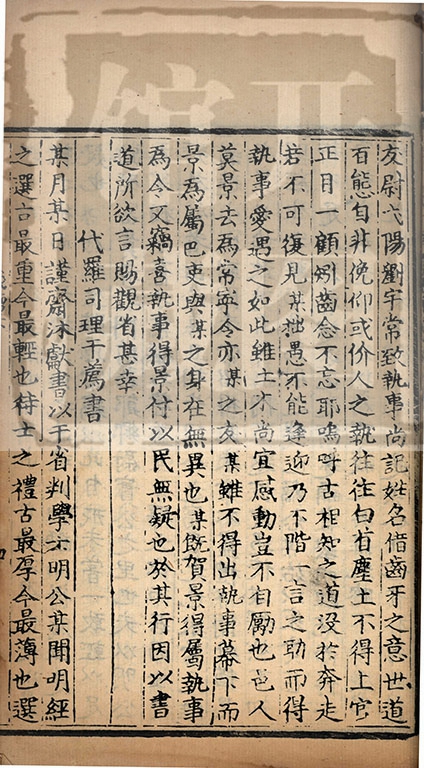 友尉弋陽劉宇常致執事尚記姓名借齒牙之意世道
百態自非俛仰或价人之執往往白首塵土不得上官
正目一顧矧齒念不忘耶嗚呼古相知之道沒於奔走
若不可復見某拙愚不能逢迎乃不階一言之助而得
執事愛遇之如此雖土木尚宜感動豈不自勵也邑人
莫景去為常寧令亦某之友某雖不得出執事幕下而
景為屬巴吏與某之身在無異也某既賀景得屬執事
為令又竊喜執事得景付以民無疑也於其行因以書
道所欲言賜觀省甚幸
代羅司理干薦書
某月某日謹齋沐獻書以干省判學士明公某聞明經
之選古最重今最輕也待士之禮古最厚今最薄也選